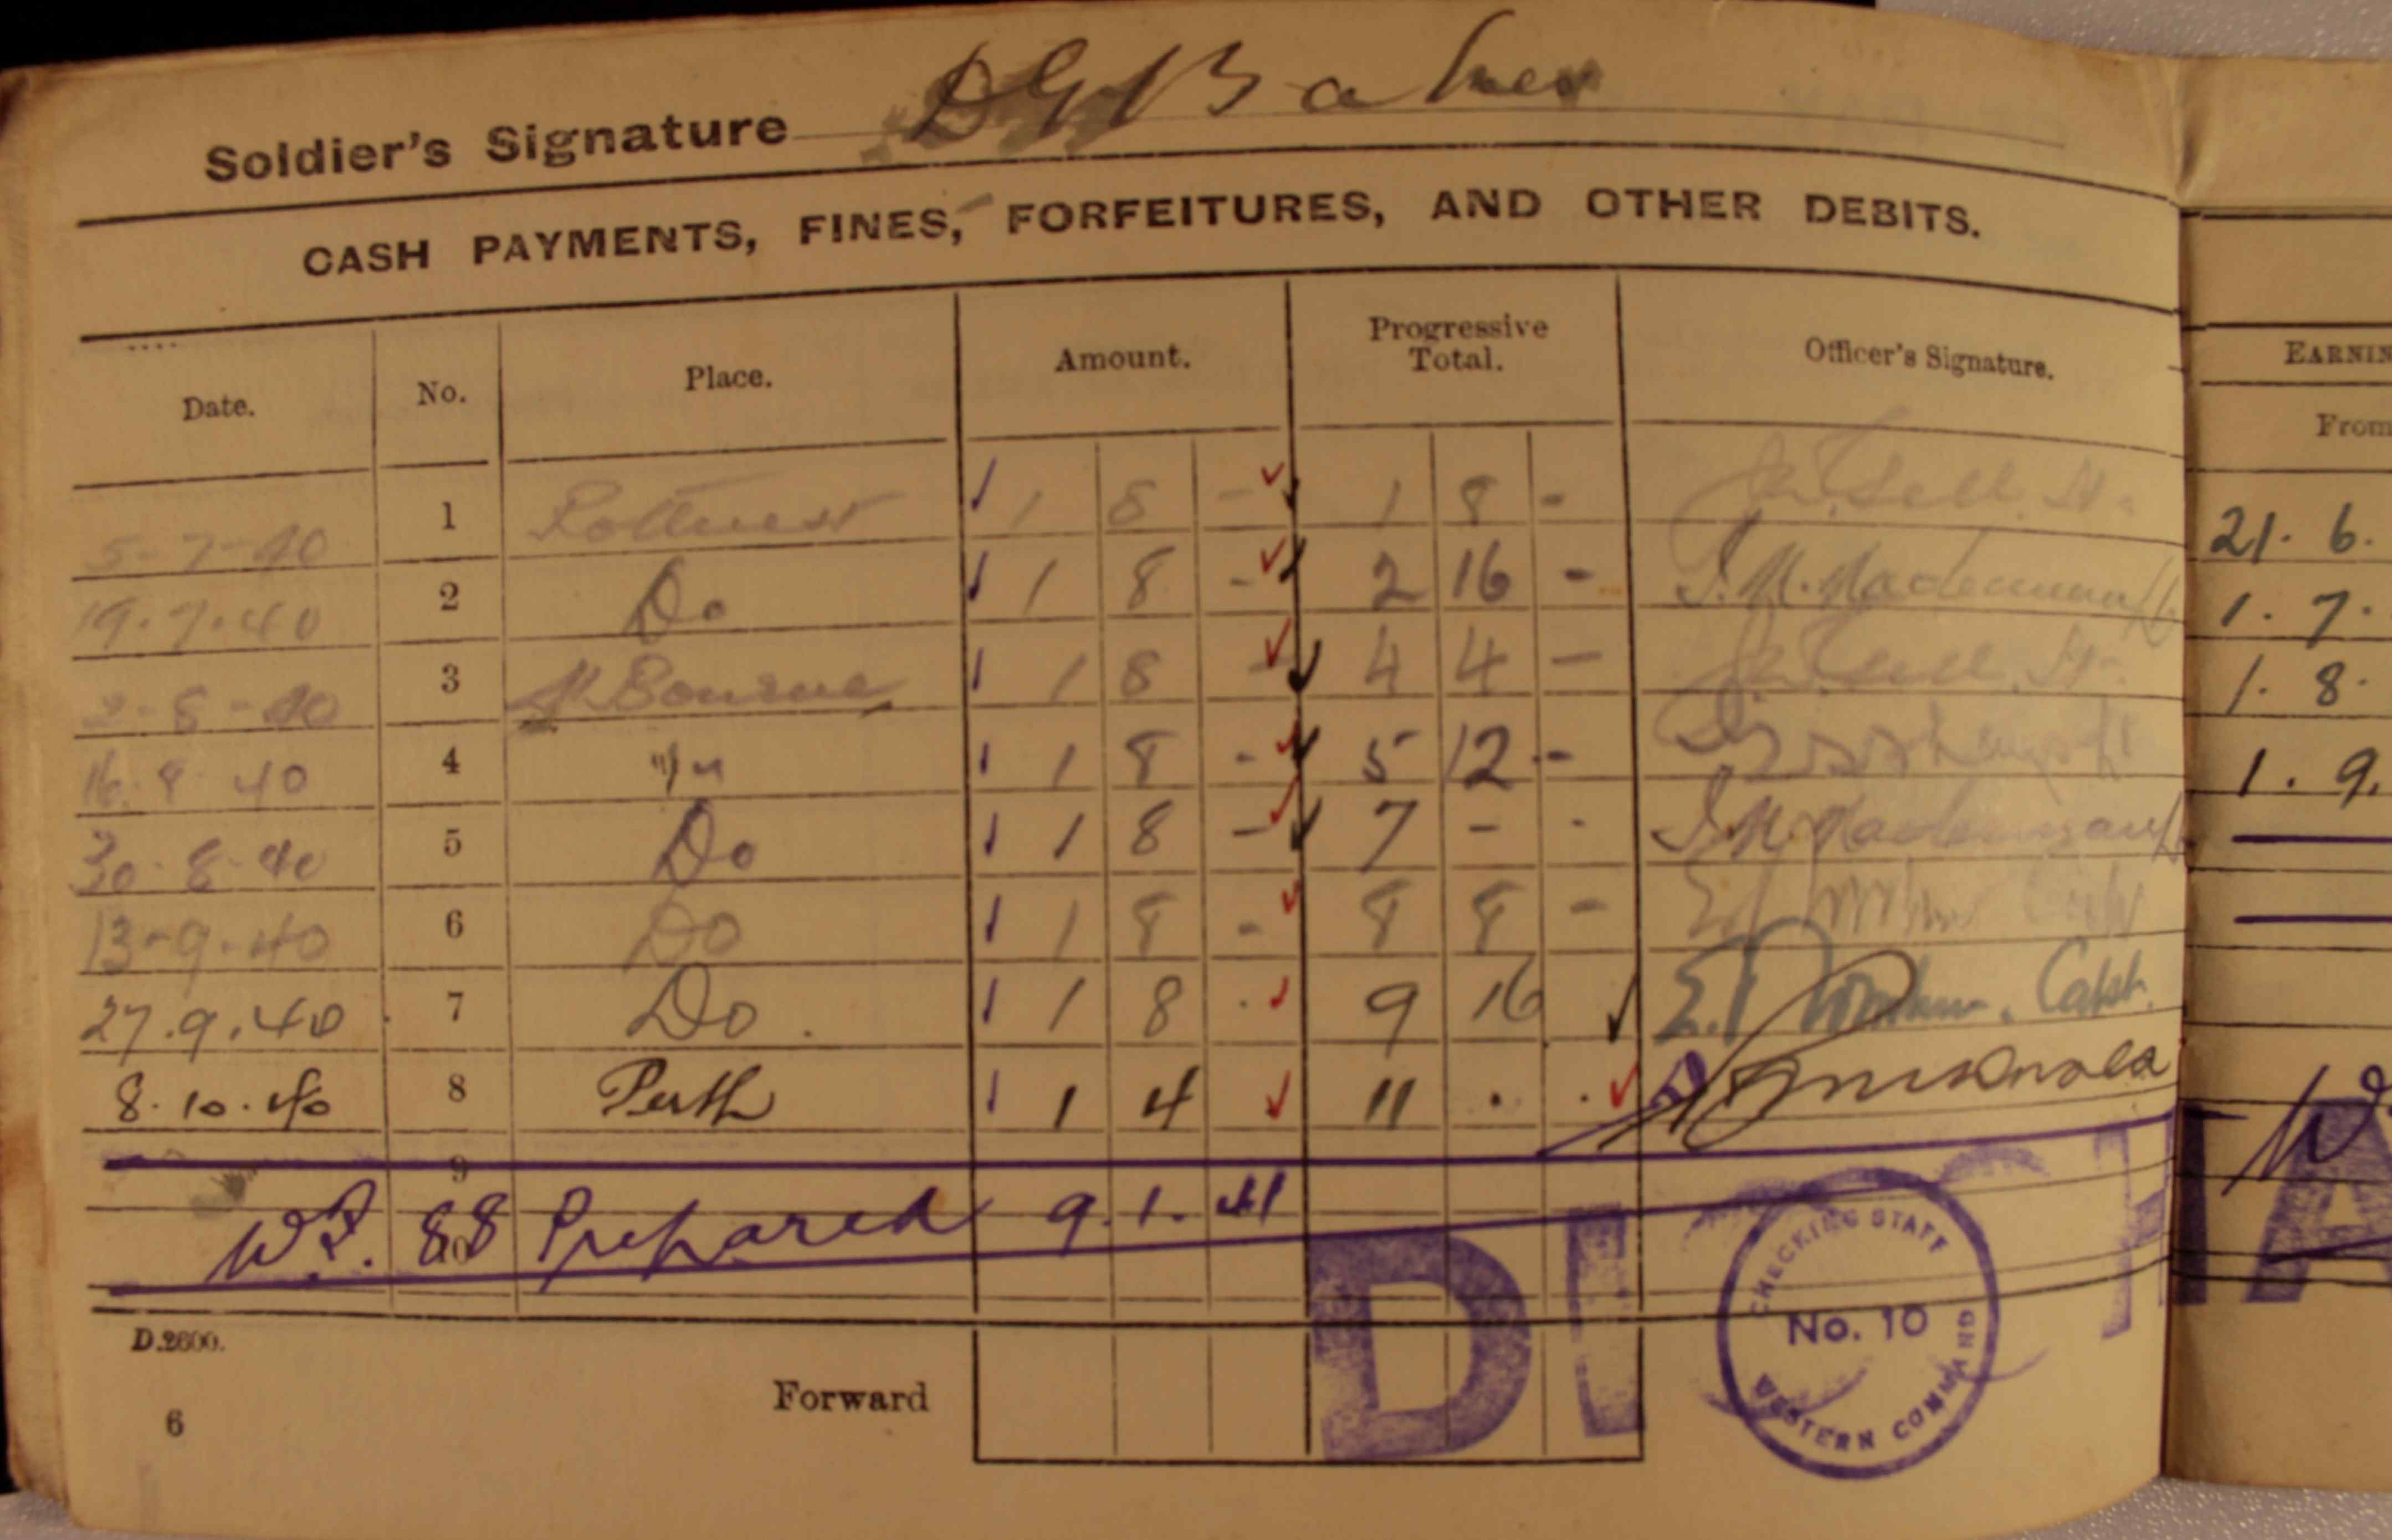 Soldier's Signature D G Baker
CASH PAYMENTS, FINES, FORFEITURES, AND OTHER DEBITS.
Date. No. Place. Amount. Progressive Total. Officer's Signature.
5-7-40 1 Rottnest 1 8 - 1 8 -
19.7.40 2 Do 1 8 - 2 16 -
2-8-40 3 1 8 - 4 4 -
16.8.40 4 1 8 - 5 12 -
30.8.40 5 Do 1 8 - 7 - -
13-9-40 6 Do 1 8 - 8 8 -
27.9.40 7 Do. 1 8 . 9 16 Capt.
8.10.40 8 Perth 1 4 11 . .
9
W.F. 88 Prepared 9.1.41
10
D.2600.
Forward
6
CHECKING STAFF
No. 10
WESTERN COMMAND
EARNIN
From
21. 6.
1. 7.
1. 8.
1. 9.